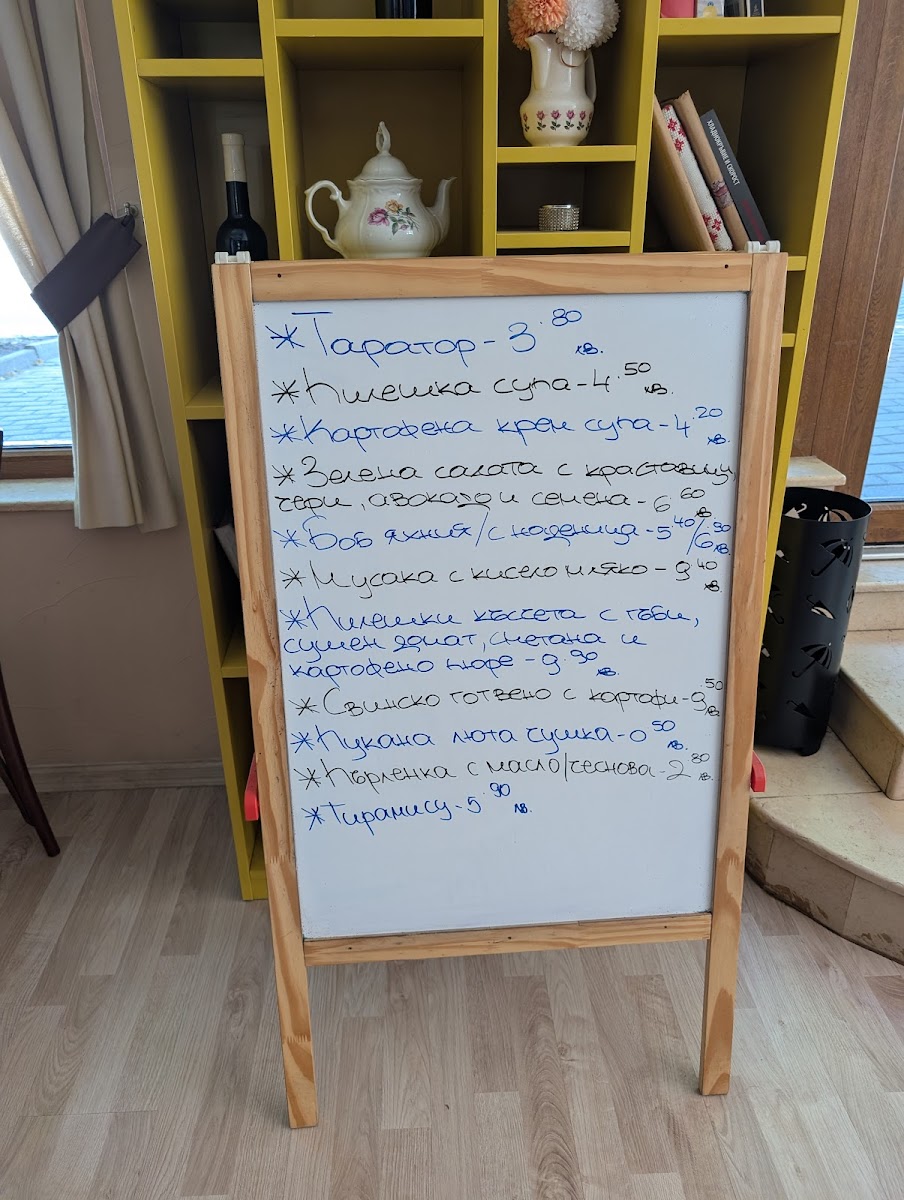 ХЛАДНОКРЪВИЕ И СКОРОСТ
* Таратор - 3.80 лв.
* Пилешка супа - 4.50 лв.
* Картофена крем супа - 4.20 лв.
* Зелена салата с краставици,
чери, авокадо и семена - 6.60 лв
* Боб яхния/с наденица - 5.40/6.90 лв.
* Мусака с кисело мляко - 9.40 лв
* Пилешки късчета с гъби,
сушен домат, сметана и
картофено пюре - 9.90 лв.
* Свинско готвено с картофи - 9.50 лв
* Пукана люта чушка - 0.50 лв.
* Пърленка с масло/чеснова - 2.80 лв.
* Тирамису - 5.90 лв.